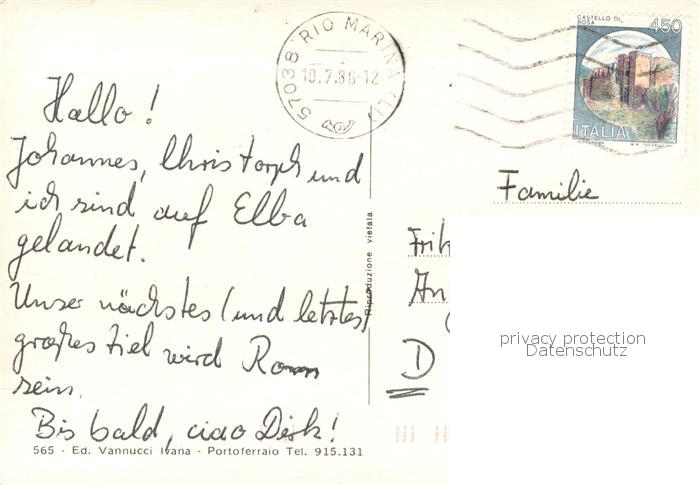 57038 RIO MARINA (LI)
10.7.86-12
CASTELLO DI
ROSA
450
ITALIA
Hallo!
Johannes, Christoph und
ich sind auf Elba
gelandet.
Unser nächstes (und letztes)
großes Ziel wird Rom
sein.
Bis bald, ciao Dirk!
Riproduzione vietata
Familie
Frit
An
D
privacy protection
Datenschutz
565 - Ed. Vannucci Ivana - Portoferraio Tel. 915.131